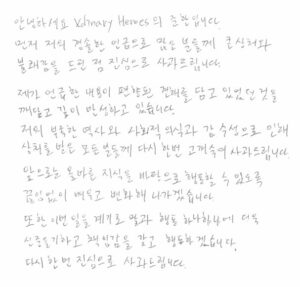 안녕하세요 Kulinary Heroes의 준합입니다.
먼저 저의 경솔한 언급으로 많은 분들께 큰 상처와
불쾌감을 드린 점 진심으로 사과드립니다.
제가 언급한 내용이 편향된 견해를 담고 있었던 것을
깨닫고 깊이 반성하고 있습니다.
저의 부족한 역사와 사회적 의식과 감수성으로 인해
상처를 받은 모든 분들께 다시 한번 고개숙여 사과드립니다.
앞으로는 올바른 지식을 바탕으로 행동할 수 있도록
끊임없이 배우고 변화해 나가겠습니다.
또한 이번 일을 계기로 말과 행동 하나하나에 더욱
신중을기하고 책임감을 갖고 행동하겠습니다.
다시 한 번 진심으로 사과드립니다.